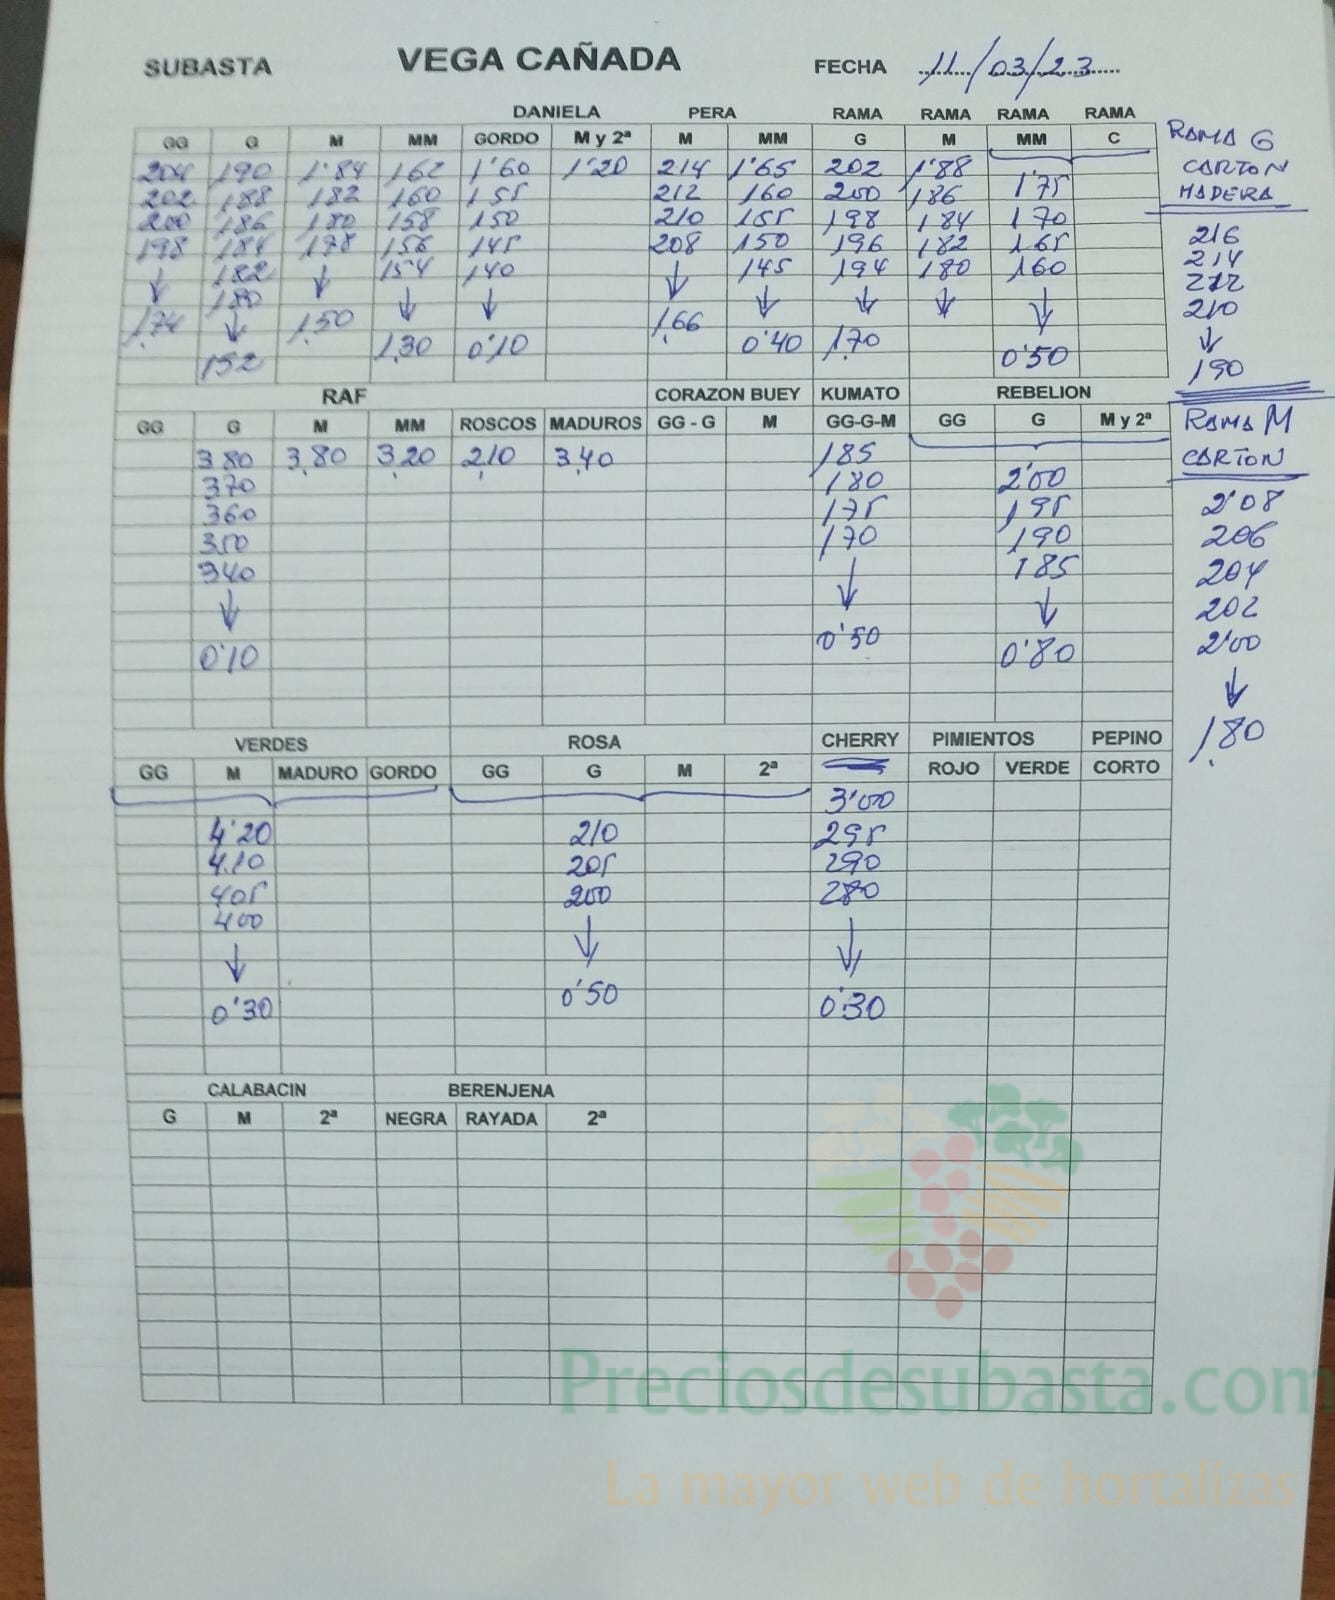 SUBASTA VEGA CAÑADA FECHA 11/03/23
DANIELA PERA RAMA RAMA RAMA RAMA
GG G M MM GORDO M y 2ª M MM G M MM C
RAMA G
CARTON
MADERA
204 190 1'84 162 1'60 1'20 214 1'65 202 1'88
202 188 182 160 155 212 160 200 186 1'75
200 186 180 158 150 210 155 198 184 170
198 184 178 156 145 208 150 196 182 165
182 154 140 145 194 180 160
↓ 180 ↓ ↓ ↓ ↓ ↓ ↓ ↓ ↓
1.74 ↓ 1.50 1.66
152 1.30 0'10 0'40 1.70 0'50
216
214
212
210
↓
190
RAF CORAZON BUEY KUMATO REBELION
GG G M MM ROSCOS MADUROS GG - G M GG-G-M GG G M y 2ª
RAMA M
CARTON
3.80 3.80 3.20 2.10 3.40 185
370 180 2'00
360 175 195
350 170 190
340 185
↓ ↓ ↓
0'10 0'50 0'80
2'08
206
204
202
2'00
↓
1.80
VERDES ROSA CHERRY PIMIENTOS PEPINO
GG M MADURO GORDO GG G M 2ª ROJO VERDE CORTO
3'00
4'20 210 295
4.10 205 290
405 200 280
400
↓ ↓ ↓
0'30 0'50 0'30
CALABACIN BERENJENA
G M 2ª NEGRA RAYADA 2ª
Preciosdesubasta.com
La mayor web de hortalizas